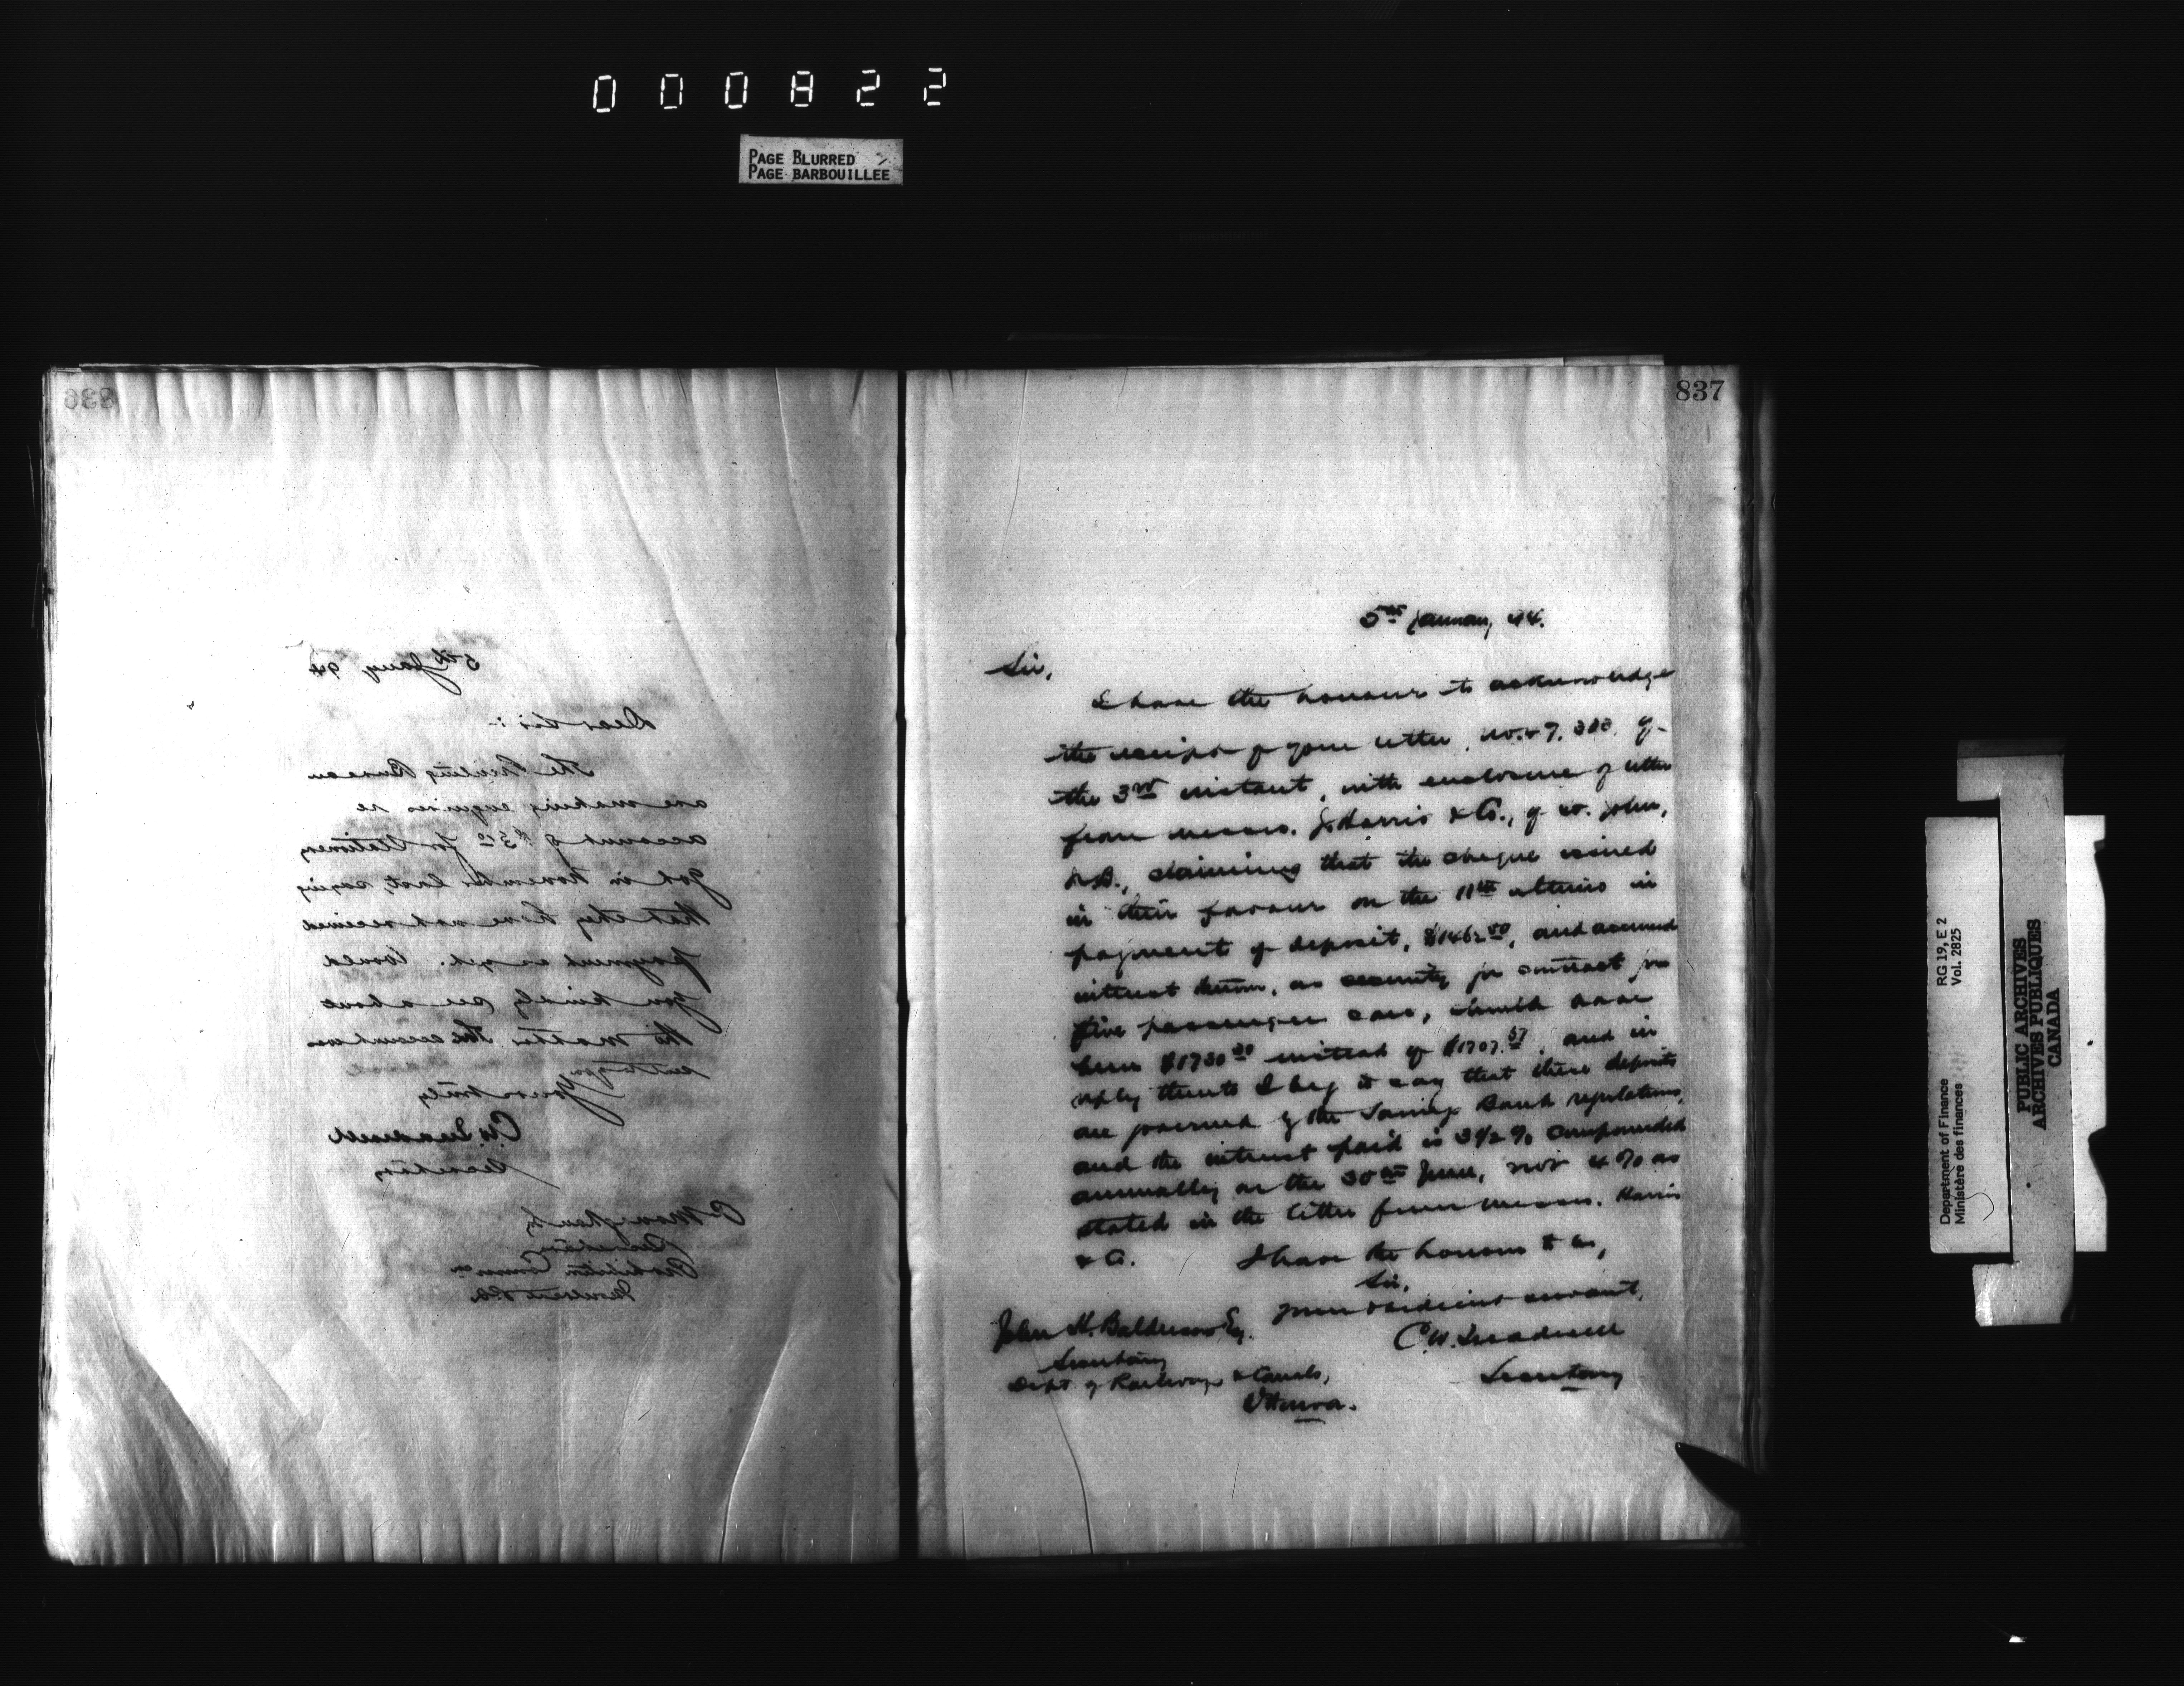 000822
PAGE BLURRED
PAGE BARBOUILLÉE
836
5th Jany 94
Dear Sir :-
The Printing Bureau
are making enquiries re
account of $5 for Stationery
got in November last, saying
that they have not received
payment as yet. Would
you kindly see about
the matter. The account was
sent to you
Yours truly
C.W. Treadwell
Secretary
P Monaghan Esq
Secretary
Prohibition Commn
Montreal P.Q.
837
5th January, 94.
Sir,
I have the honour to acknowledge
the receipt of your letter, No. 47,
the 3rd instant, with enclosure of letter
from Messrs. J. Harris & Co., of St. John,
N.B., claiming that the cheque issued
in their favour on the 11th ultimo in
payment of deposit, $1462.50, and accrued
interest thereon, as security for contract for
five passenger cars, should have
been $1730.30 instead of $1707.57, and in
reply thereto I beg to say that these deposits
are governed by the Savings Bank regulations,
and the interest paid is 3 1/2 % compounded
annually on the 30th June, not 4 % as
stated in the letter from Messrs. Harris
& Co. I have the honour to be,
Sir,
your obedient servant,
C.W. Treadwell
Secretary
John H. Balderson Esq.
Secretary
Dept of Railways & Canals,
Ottawa.
Department of Finance RG 19, E 2
Ministère des finances Vol. 2825
PUBLIC ARCHIVES
ARCHIVES PUBLIQUES
CANADA